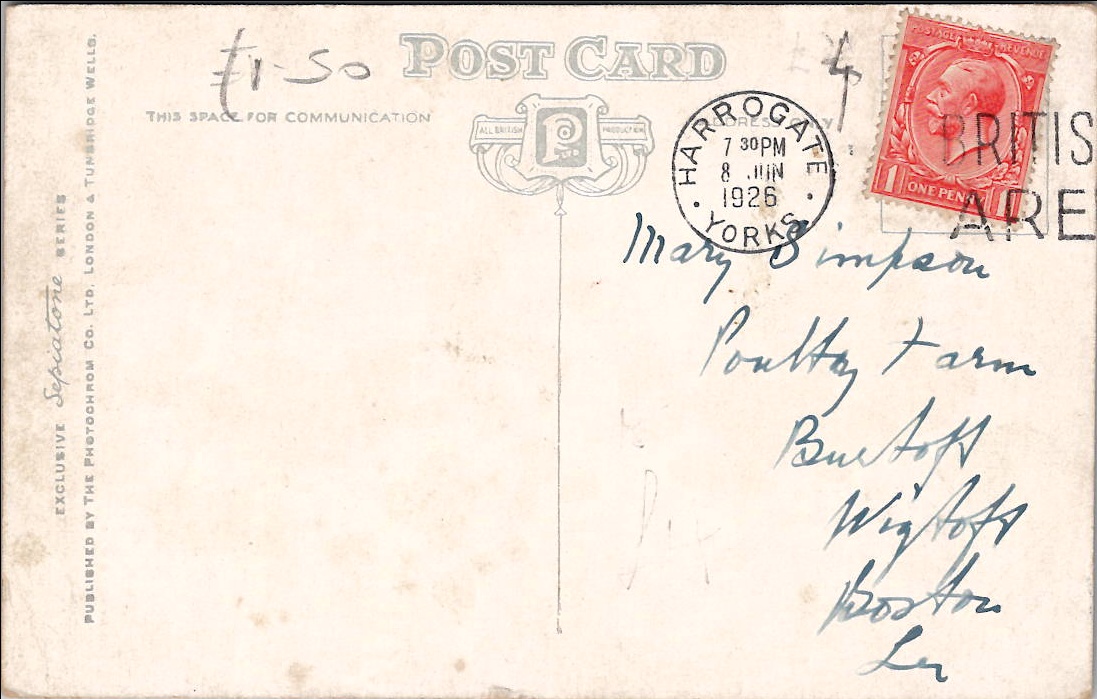 £1-50
POST CARD
THIS SPACE FOR COMMUNICATION
ALL BRITISH PRODUCTION
HARROGATE
7 30PM
8 JUN
1926
YORKS
POSTAGE REVENUE
1 ONE PENNY 1
BRITIS
ARE
Mary Simpson
Poultry Farm
Burtoft
Wigtoft
Boston
EXCLUSIVE Sepiatone SERIES
PUBLISHED BY THE PHOTOCHROM CO. LTD. LONDON & TUNBRIDGE WELLS.